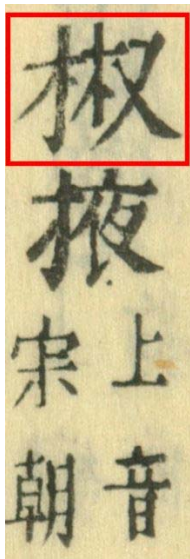 椒掖
上音
宗朝